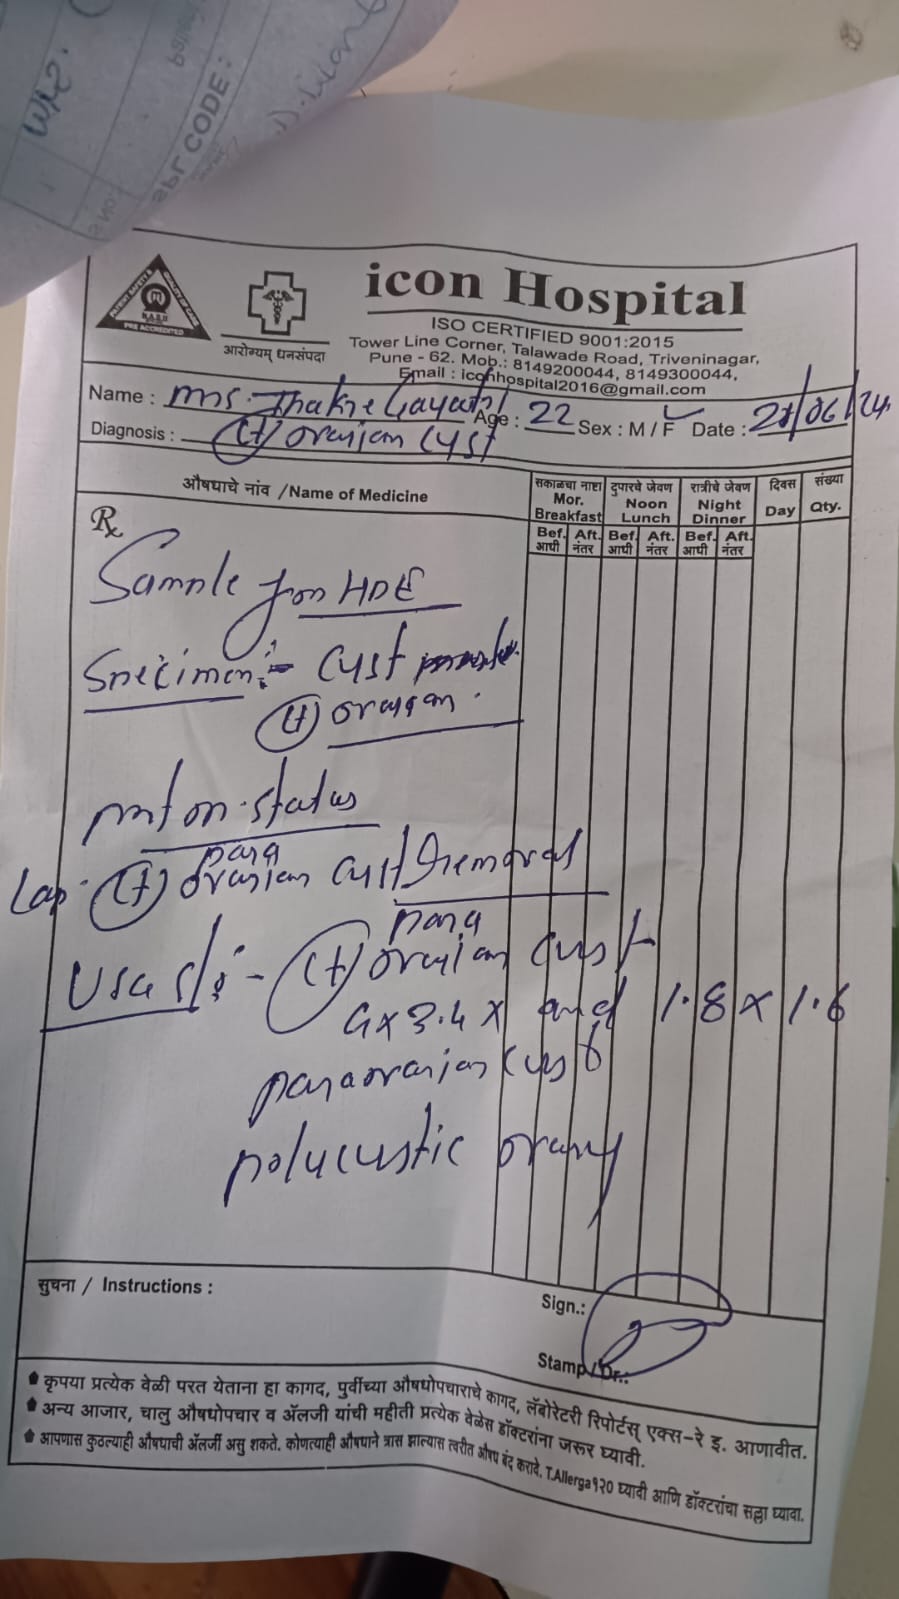 icon Hospital
ISO CERTIFIED 9001:2015
Tower Line Corner, Talawade Road, Triveninagar,
Pune - 62. Mob.: 8149200044, 8149300044,
Email : iconhospital2016@gmail.com
आरोग्यम् धनसंपदा
PRE ACCREDITED
Name : Mrs. Thakre Gayatri Age : 22 Sex : M / F Date : /06/24
Diagnosis : (Lt) ovarian cyst
औषधाचे नांव /Name of Medicine
सकाळचा नाष्टा Mor. Breakfast
दुपारचे जेवण Noon Lunch
रात्रीचे जेवण Night Dinner
दिवस Day
संख्या Qty.
Bef. आधी Aft. नंतर Bef. आधी Aft. नंतर Bef. आधी Aft. नंतर
Rx
Sample for HPE
Specimen :- cyst
(Lt) ovarian.
status
para
Lap. (Lt) ovarian cyst removal
para
(Lt) ovarian cyst
4x3.4x and 1.8 x 1.6
paraovarian cyst
polycystic ovary
सुचना / Instructions :
Sign.:
Stamp / Dr.:
कृपया प्रत्येक वेळी परत येताना हा कागद, पुर्वीच्या औषधोपचाराचे कागद, लॅबोरेटरी रिपोर्टस् एक्स-रे इ. आणावीत.
अन्य आजार, चालु औषधोपचार व ॲलर्जी यांची महीती प्रत्येक वेळेस डॉक्टरांना जरूर घ्यावी.
आपणास कुठल्याही औषधाची ॲलर्जी असु शकते. कोणत्याही औषधाने त्रास झाल्यास त्वरीत औषध बंद करावे. T.Allerga१२० घ्यावी आणि डॉक्टरांचा सल्ला घ्यावा.